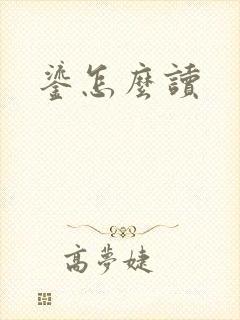 鎏怎麼讀
高夢婕